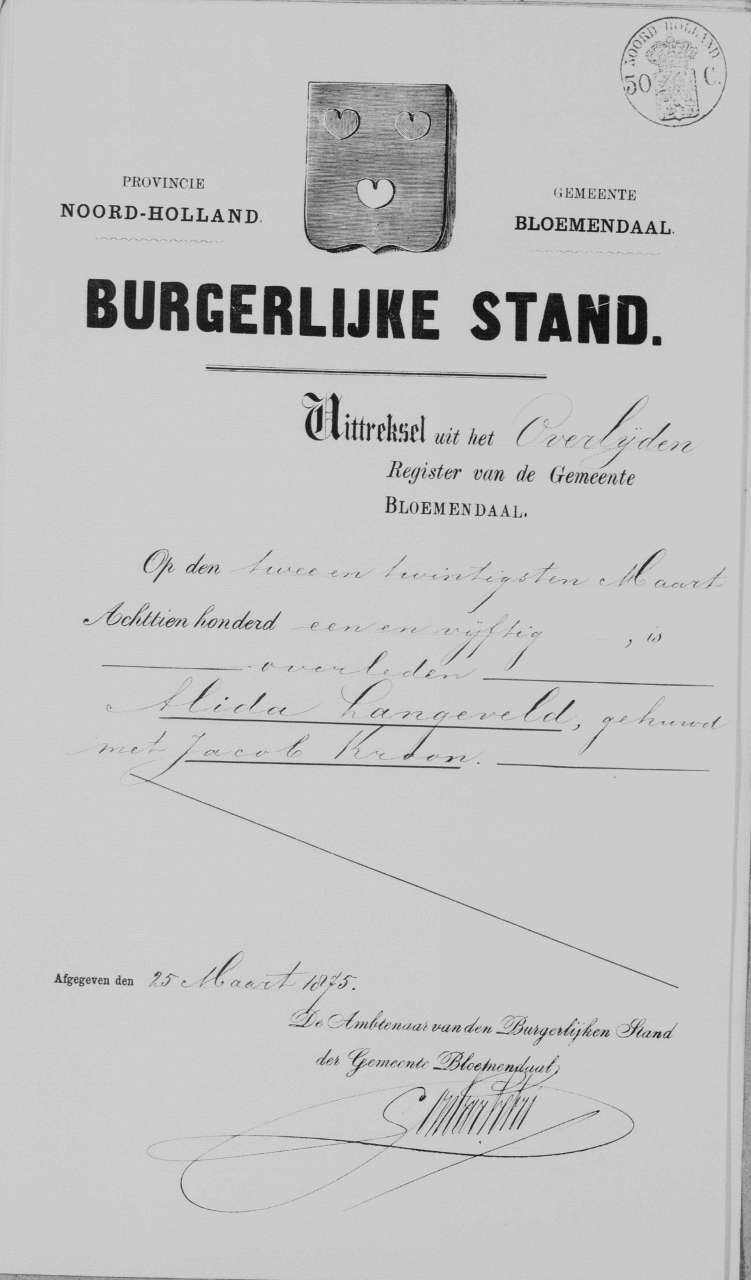 NOORD HOLLAND
50 C.
PROVINCIE
NOORD-HOLLAND.
GEMEENTE
BLOEMENDAAL.
BURGERLIJKE STAND.
Uittreksel uit het Overlijden
Register van de Gemeente
BLOEMENDAAL.
Op den twee en twintigsten Maart
Achttien honderd een en vijftig, is
overleden
Alida Langeveld, gehuwd
met Jacob Kroon.
Afgegeven den 25 Maart 1875.
De Ambtenaar van den Burgerlijken Stand
der Gemeente Bloemendaal,